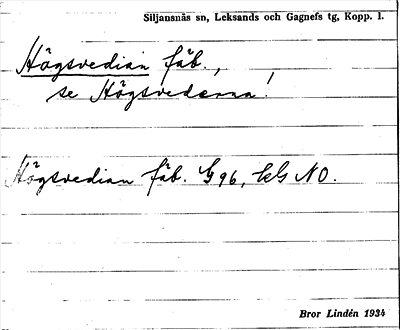 Siljansnäs sn, Leksands och Gagnefs tg, Kopp. l.
Högsvedian fäb.,
se Högsvederna!
Högsvedian fäb. G 96, NO.
Bror Lindén 1934